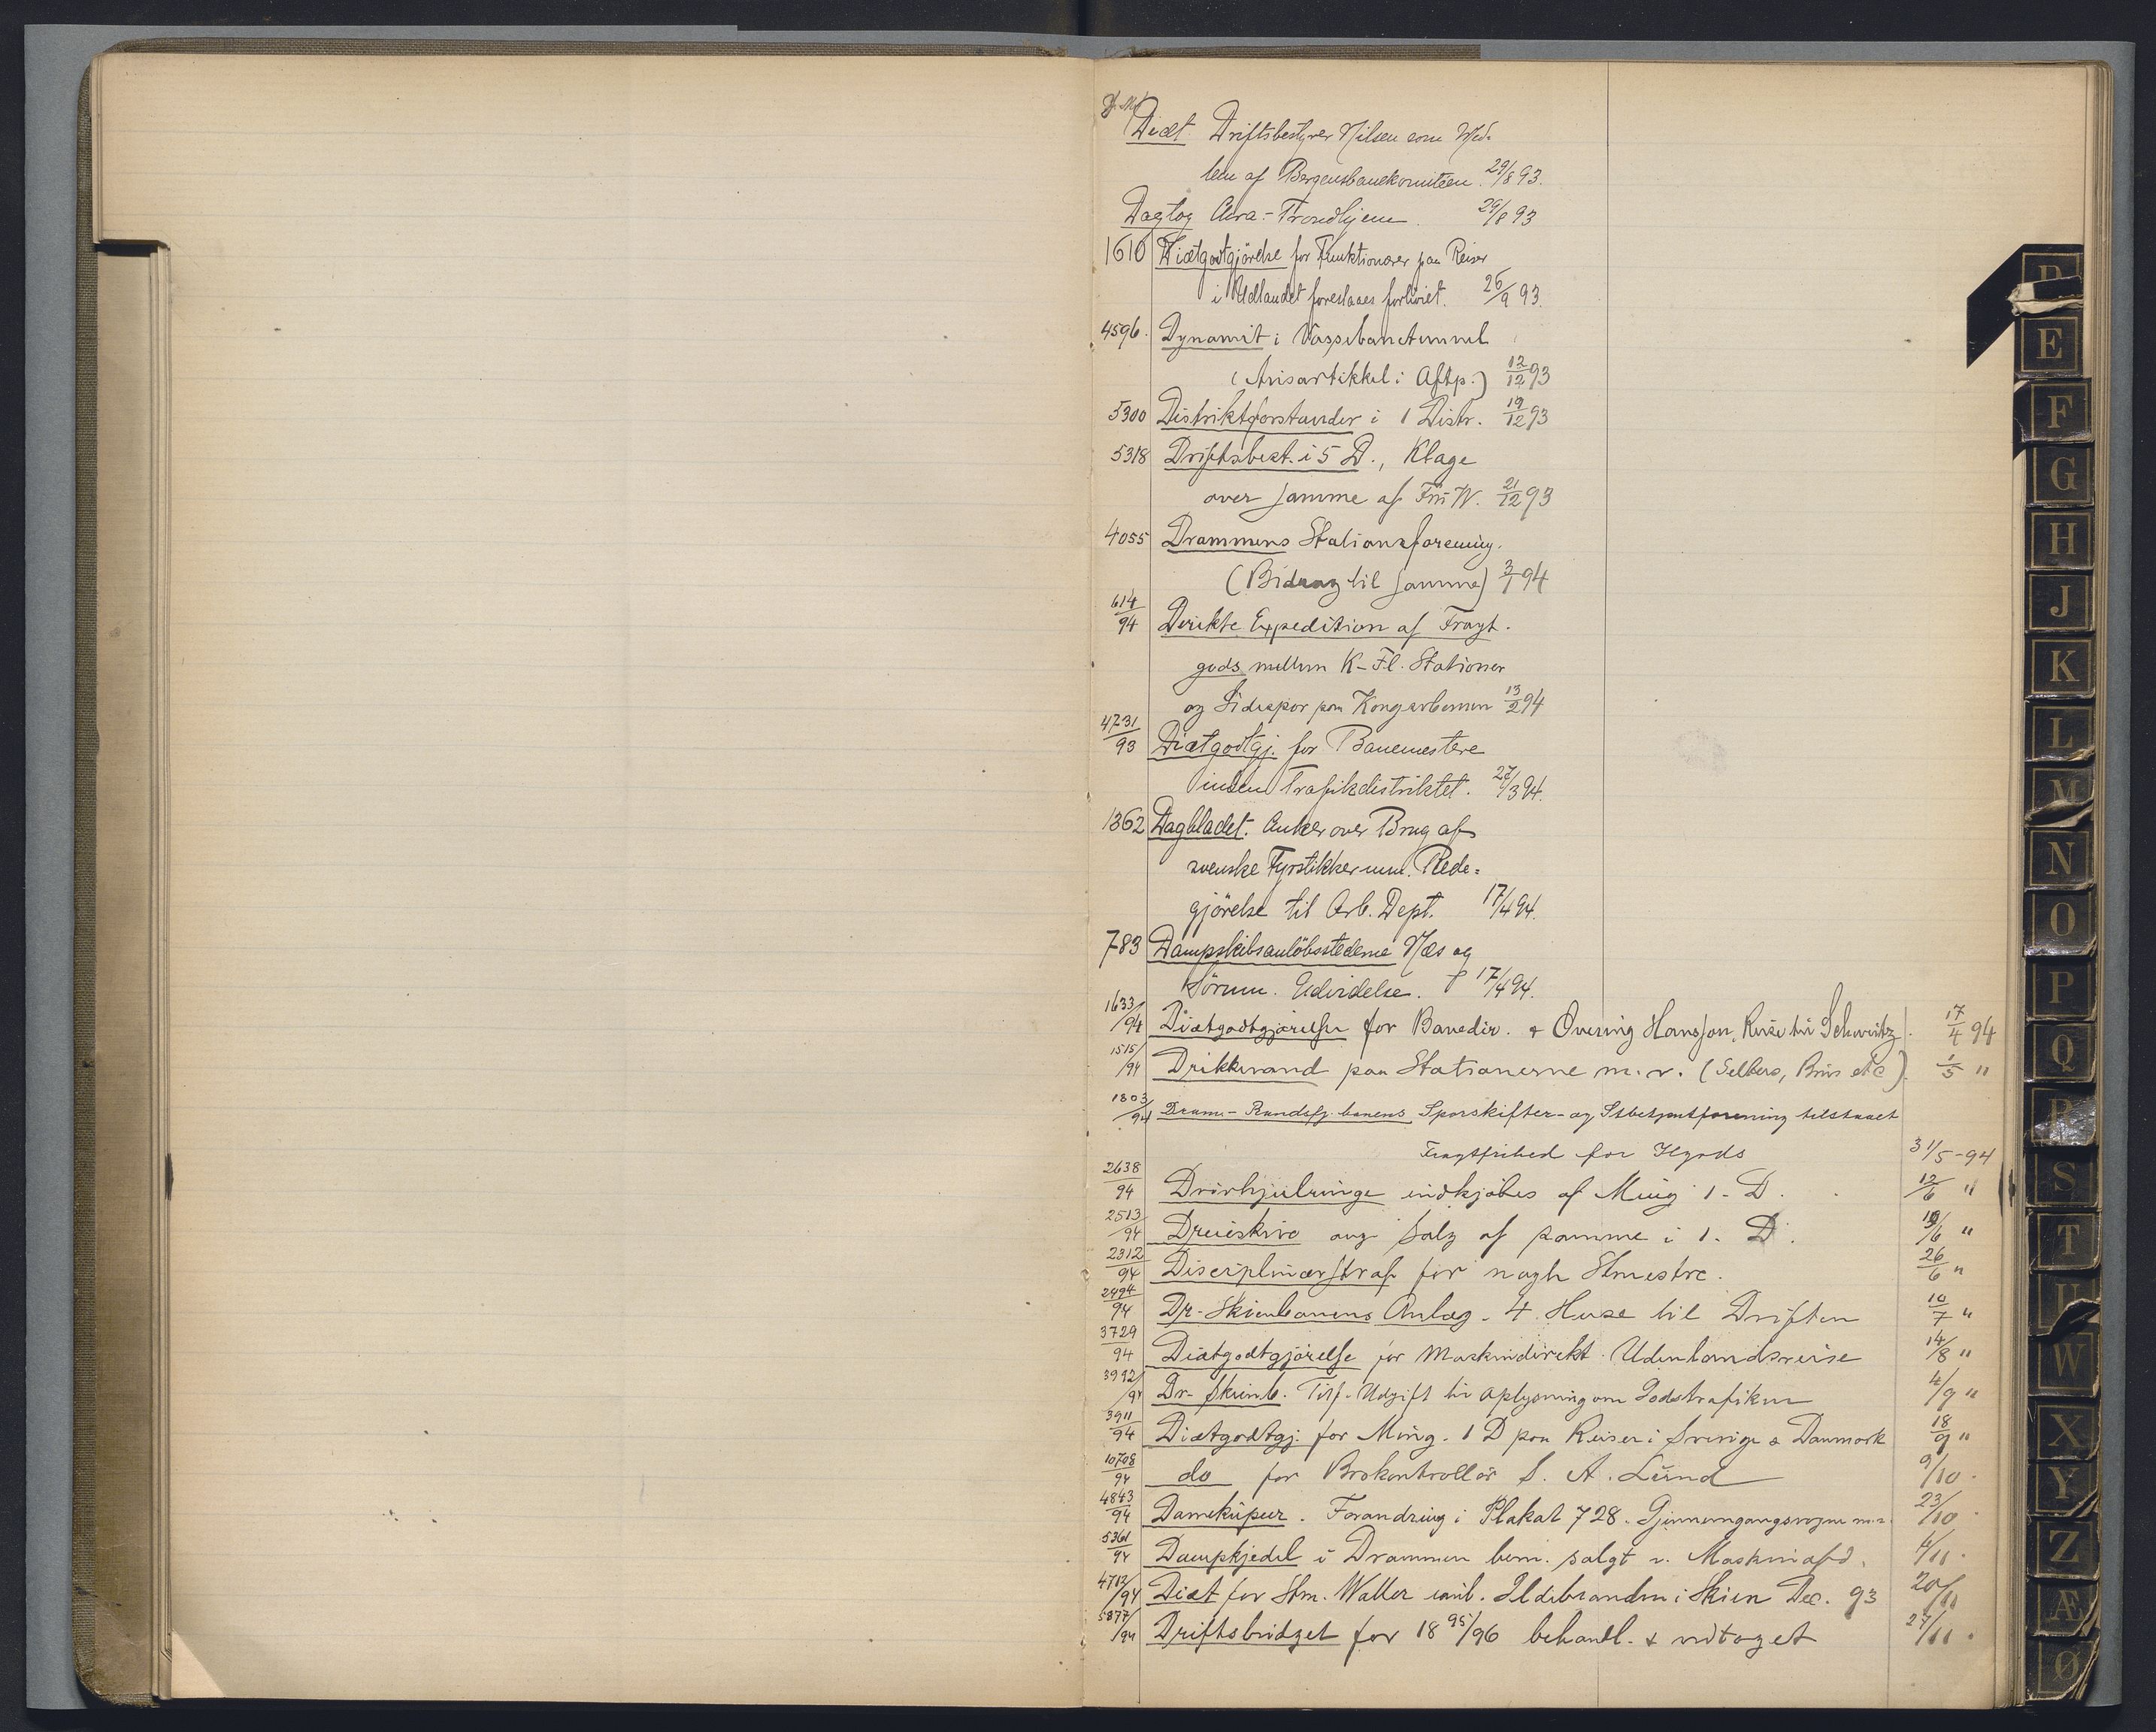 J. No
Diæt Driftsbestyrer Nilsen som Med-
lem af Bergensbanekomiteen. 29/8 93.
Dagtog Chra.-Trondhjem. 29/8 93
1610 Diætgodtgjörelse for Funktionærer paa Reiser
i Udlandet foreslaaes forhöiet. 26/9 93.
4596. Dynamit i Vossebanetunnel
(Avisartikkel i Aftp.) 12/12 93
5300 Distriktsforstander i 1 Distr. 19/12 93
5318 Driftsbest. i 5 D., Klage
over samme af W. 21/12 93
4055 Drammens Stationsforening.
(Bidrag til samme) 3/1 94
614/94 Direkte Expedition af Fragt-
gods mellem K-Fl. Stationer
og Sidespor paa Kongsvbanen 13/2 94
4731/93 Diætgodtgj. for Banemestere
inden Trafikdistriktet. 27/3 94.
1362 Dagbladet. Anker over Brug af
svenske Fyrstikker mm. Rede-
gjörelse til Arb. Dept. 17/4 94.
783 Dampskibsanlöbsstederne Næs og
Sörum. Udvidelse. 17/4 94.
1633/94 Diætgodtgjörelse for Banedir. & Overing Hansson, Reise til Schweitz. 17/4 94
1515/94 Drikkevand paa Stationerne m. v. (Selters, Brus etc). 1/5 "
1803/94 Dram.-Randsfj.banens Sporskifter- og Stbetjentforening tilstaaet
Fragtfrihed for Ilgods 31/5-94
2638/94 Drivhjulringe indkjöbes af Ming 1. D. 12/6 "
2513/94 Dreieskive ang Salg af samme i 1. D. 19/6 "
2312/94 Disciplinærstraf for nogle Stmestre. 26/6 "
2494/94 Dr-Skienbanens Anlæg. 4 Huse til Driften 10/7 "
3729/94 Diætgodtgjörelse for Maskindirekt. Udenlandsreise 14/8 "
3992/94 Dr-Skienb. Udgift til Oplysning om Godstrafiken 4/9 "
3911/94 Diætgodtgj. for Ming. 1 D paa Reiser i Sverige & Danmark 18/9 "
10708/94 do for Brokontrollör S. A. Lund 9/10.
4843/94 Damekupeer. Forandring i Plakat 728. Gjennemgangsvogne m.v. 23/10.
5361/94 Dampkjedel i Drammen bem. solgt v. Maskinafd. 6/11.
4712/94 Diæt for Stm. Waller anl. Ildebranden i Skien Dec. 93 20/11
5877/94 Driftsbudget for 1895/96 behandl. & vedtaget 27/11.
D
E
F
G
H
J
K
L
M
N
O
P
Q
R
S
T
U
W
X
Y
Z
Æ
Ø